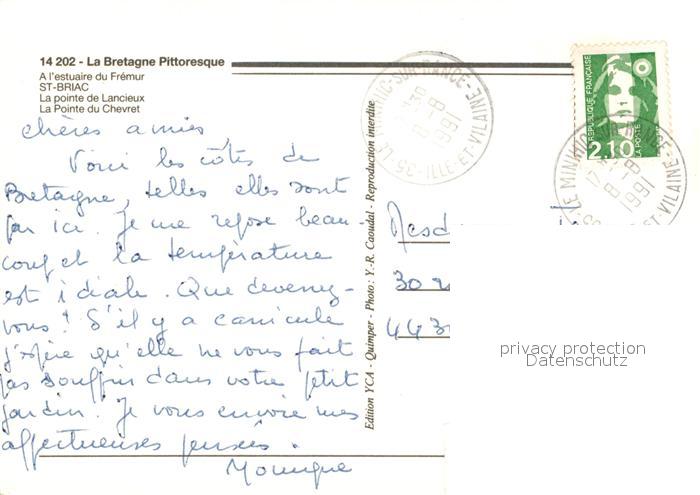 14 202 - La Bretagne Pittoresque
A l'estuaire du Frémur
ST-BRIAC
La pointe de Lancieux
La Pointe du Chevret
chères amies,
Voici les côtes de
Bretagne, telles elles sont
par ici. Je me repose beau-
coup et la température
est idiale. Que devenez-
vous! S'il y a canicule
j'espère qu'elle ne vous fait
pas souffrir dans votre petit
jardin. Je vous envoie mes
affectueuses pensées.
Monique
Edition YCA - Quimper - Photo : Y.-R. Caoudal - Reproduction interdite
35-LE MINIHIC-SUR-RANCE-ILLE-ET-VILAINE
8-8
1991
REPUBLIQUE FRANÇAISE
2,10
LA POSTE
LE MINIHIC-SUR-RANCE
ET-VILAINE
8-8
1991
Mesd
30
443
privacy protection
Datenschutz